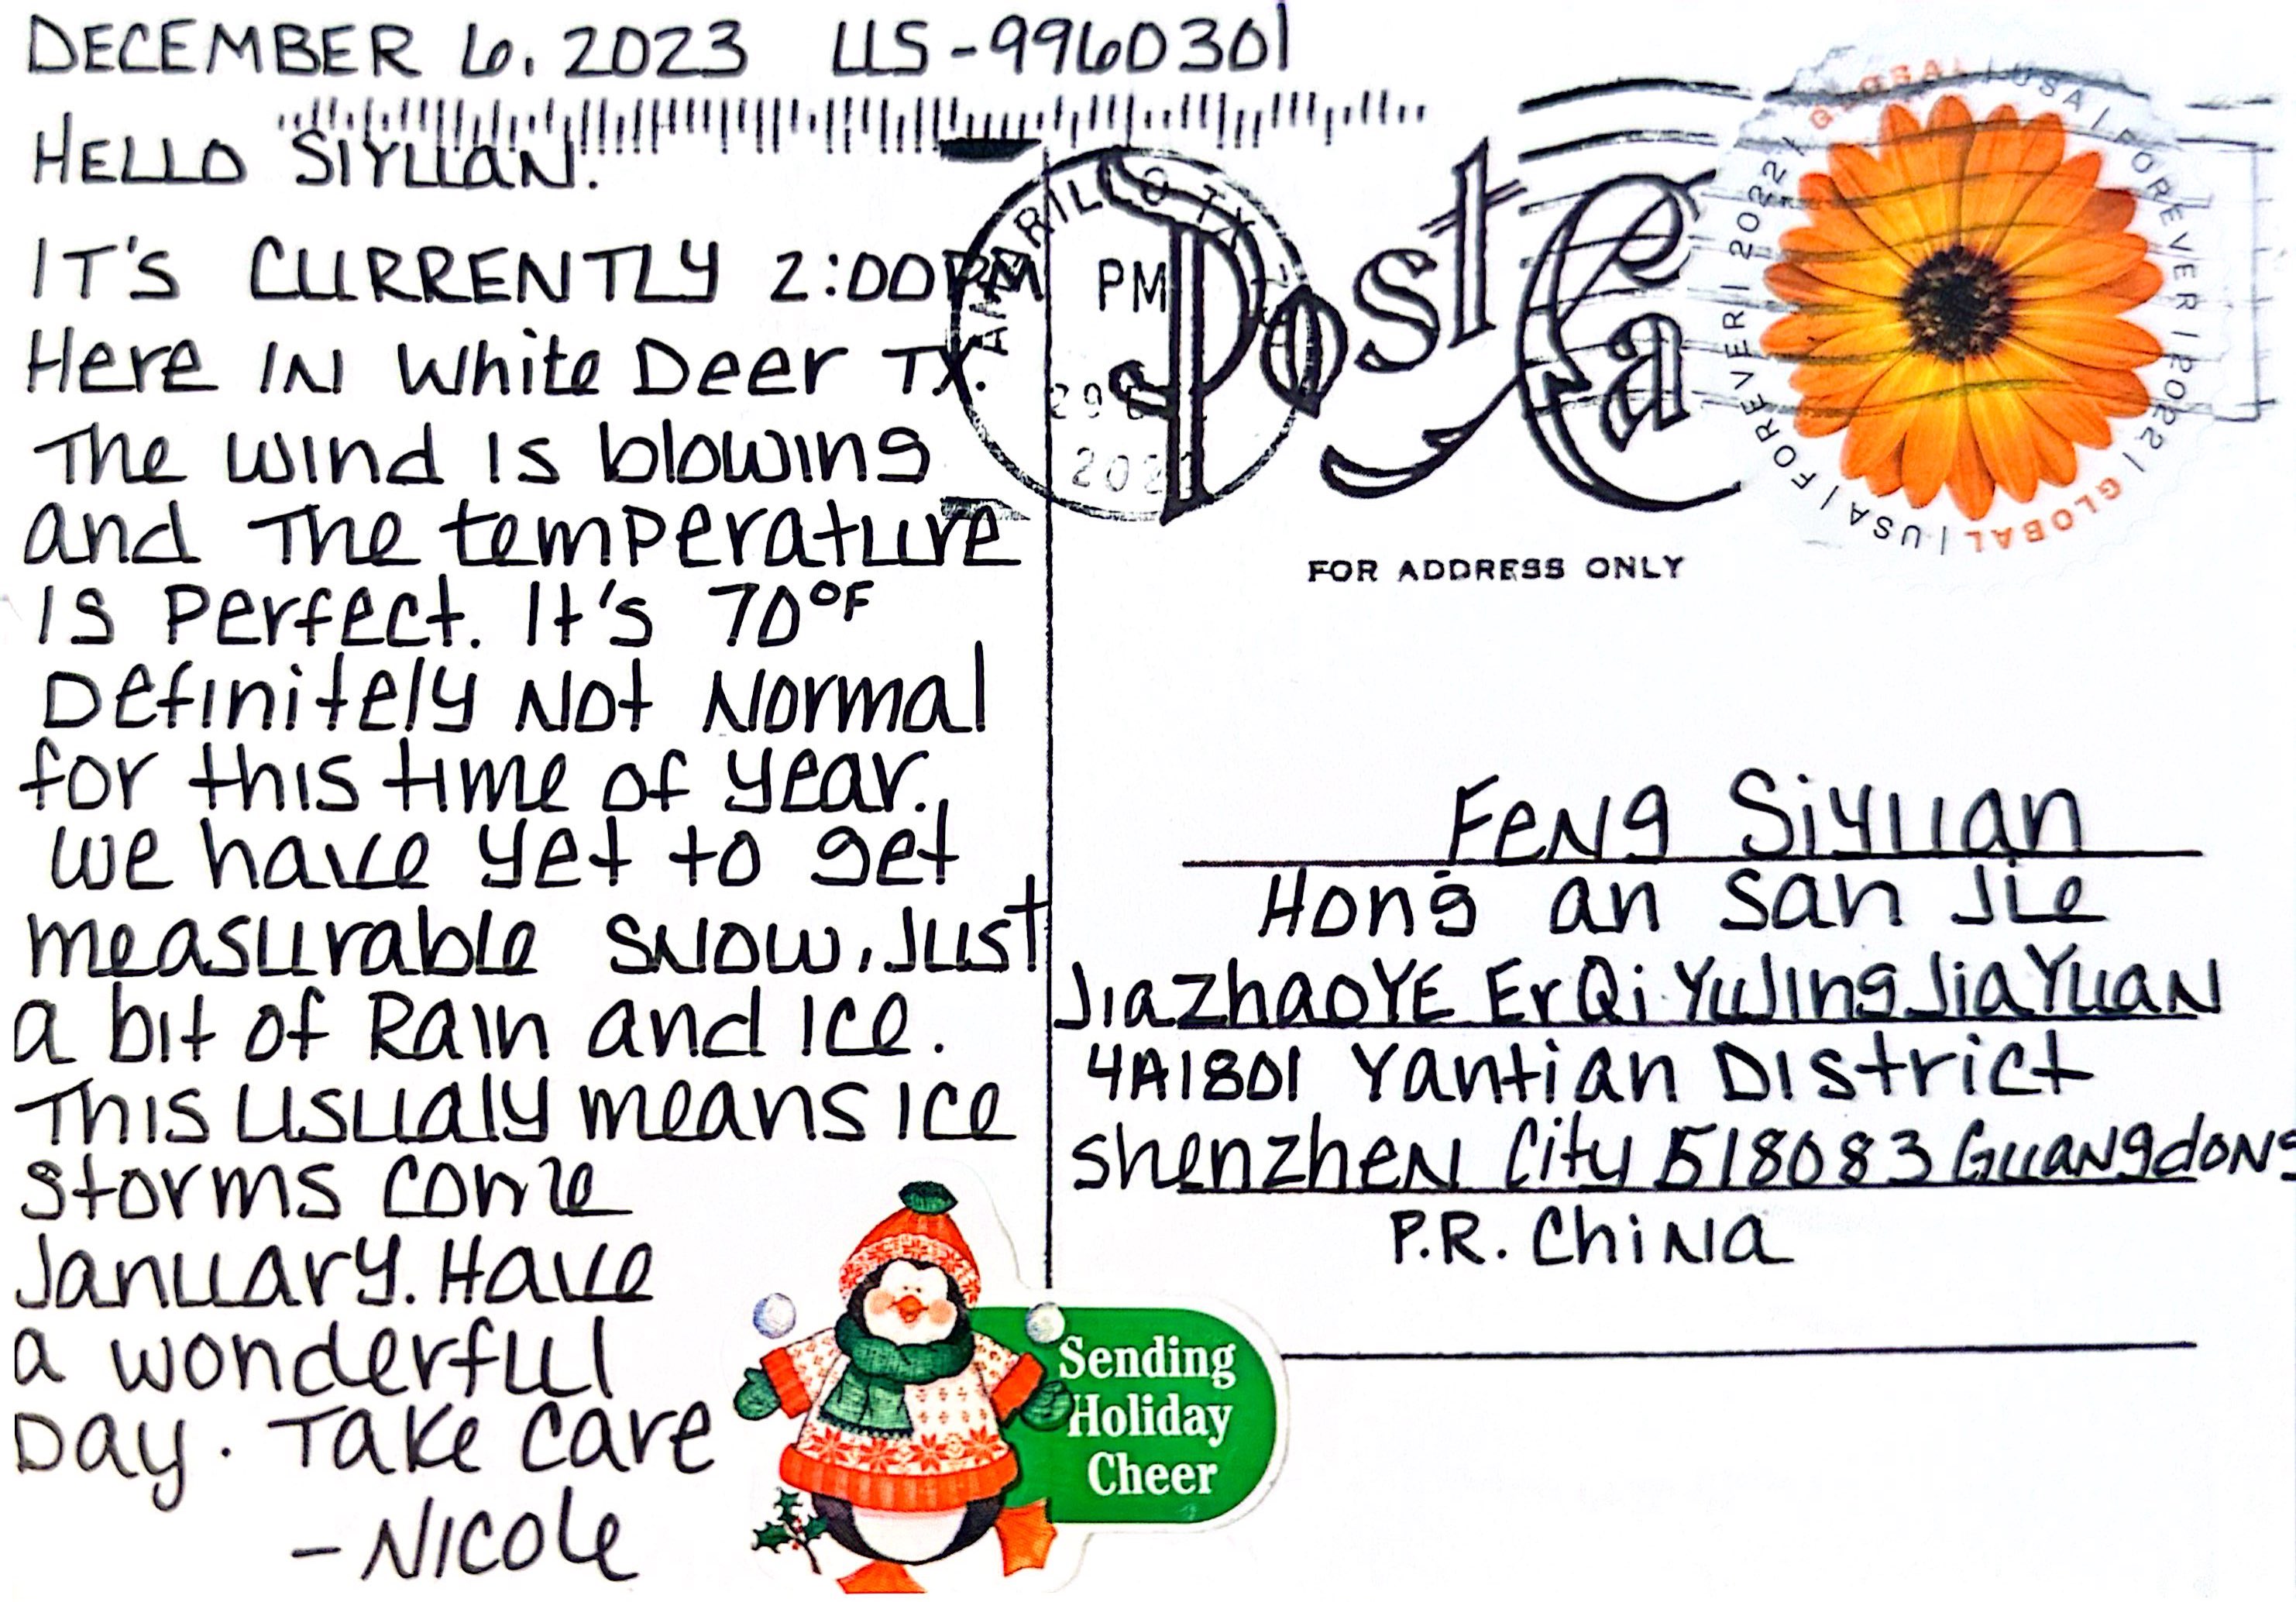 DECEMBER 6, 2023 US-9960301
HELLO SIYUAN.
IT'S CURRENTLY 2:00PM
Here IN White Deer TX.
The wind is blowing
and The temperature
is perfect. It's 70°F
Definitely Not Normal
for this time of year.
we have yet to get
measurable SNOW, Just
a bit of Rain and ice.
This usualy means ice
storms come
January. Have
a wonderful
Day. Take Care
-Nicole
AMARILLO TX
PM
Post Ca
GLOBAL | USA | FOREVER | 2022 | GLOBAL | USA | FOREVER | 2022 |
FOR ADDRESS ONLY
Feng Siyuan
Hong an San Jie
JiazhaoYE ErQi YuJingJiaYuan
4A1801 Yantian District
Shenzhen City 518083 Guangdong
P.R. China
Sending
Holiday
Cheer